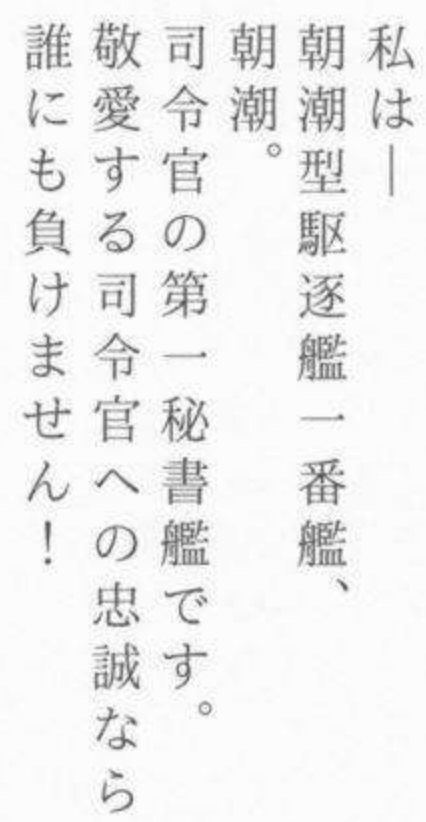 私は―
朝潮型駆逐艦一番艦、
朝潮。
司令官の第一秘書艦です。
敬愛する司令官への忠誠なら
誰にも負けません！